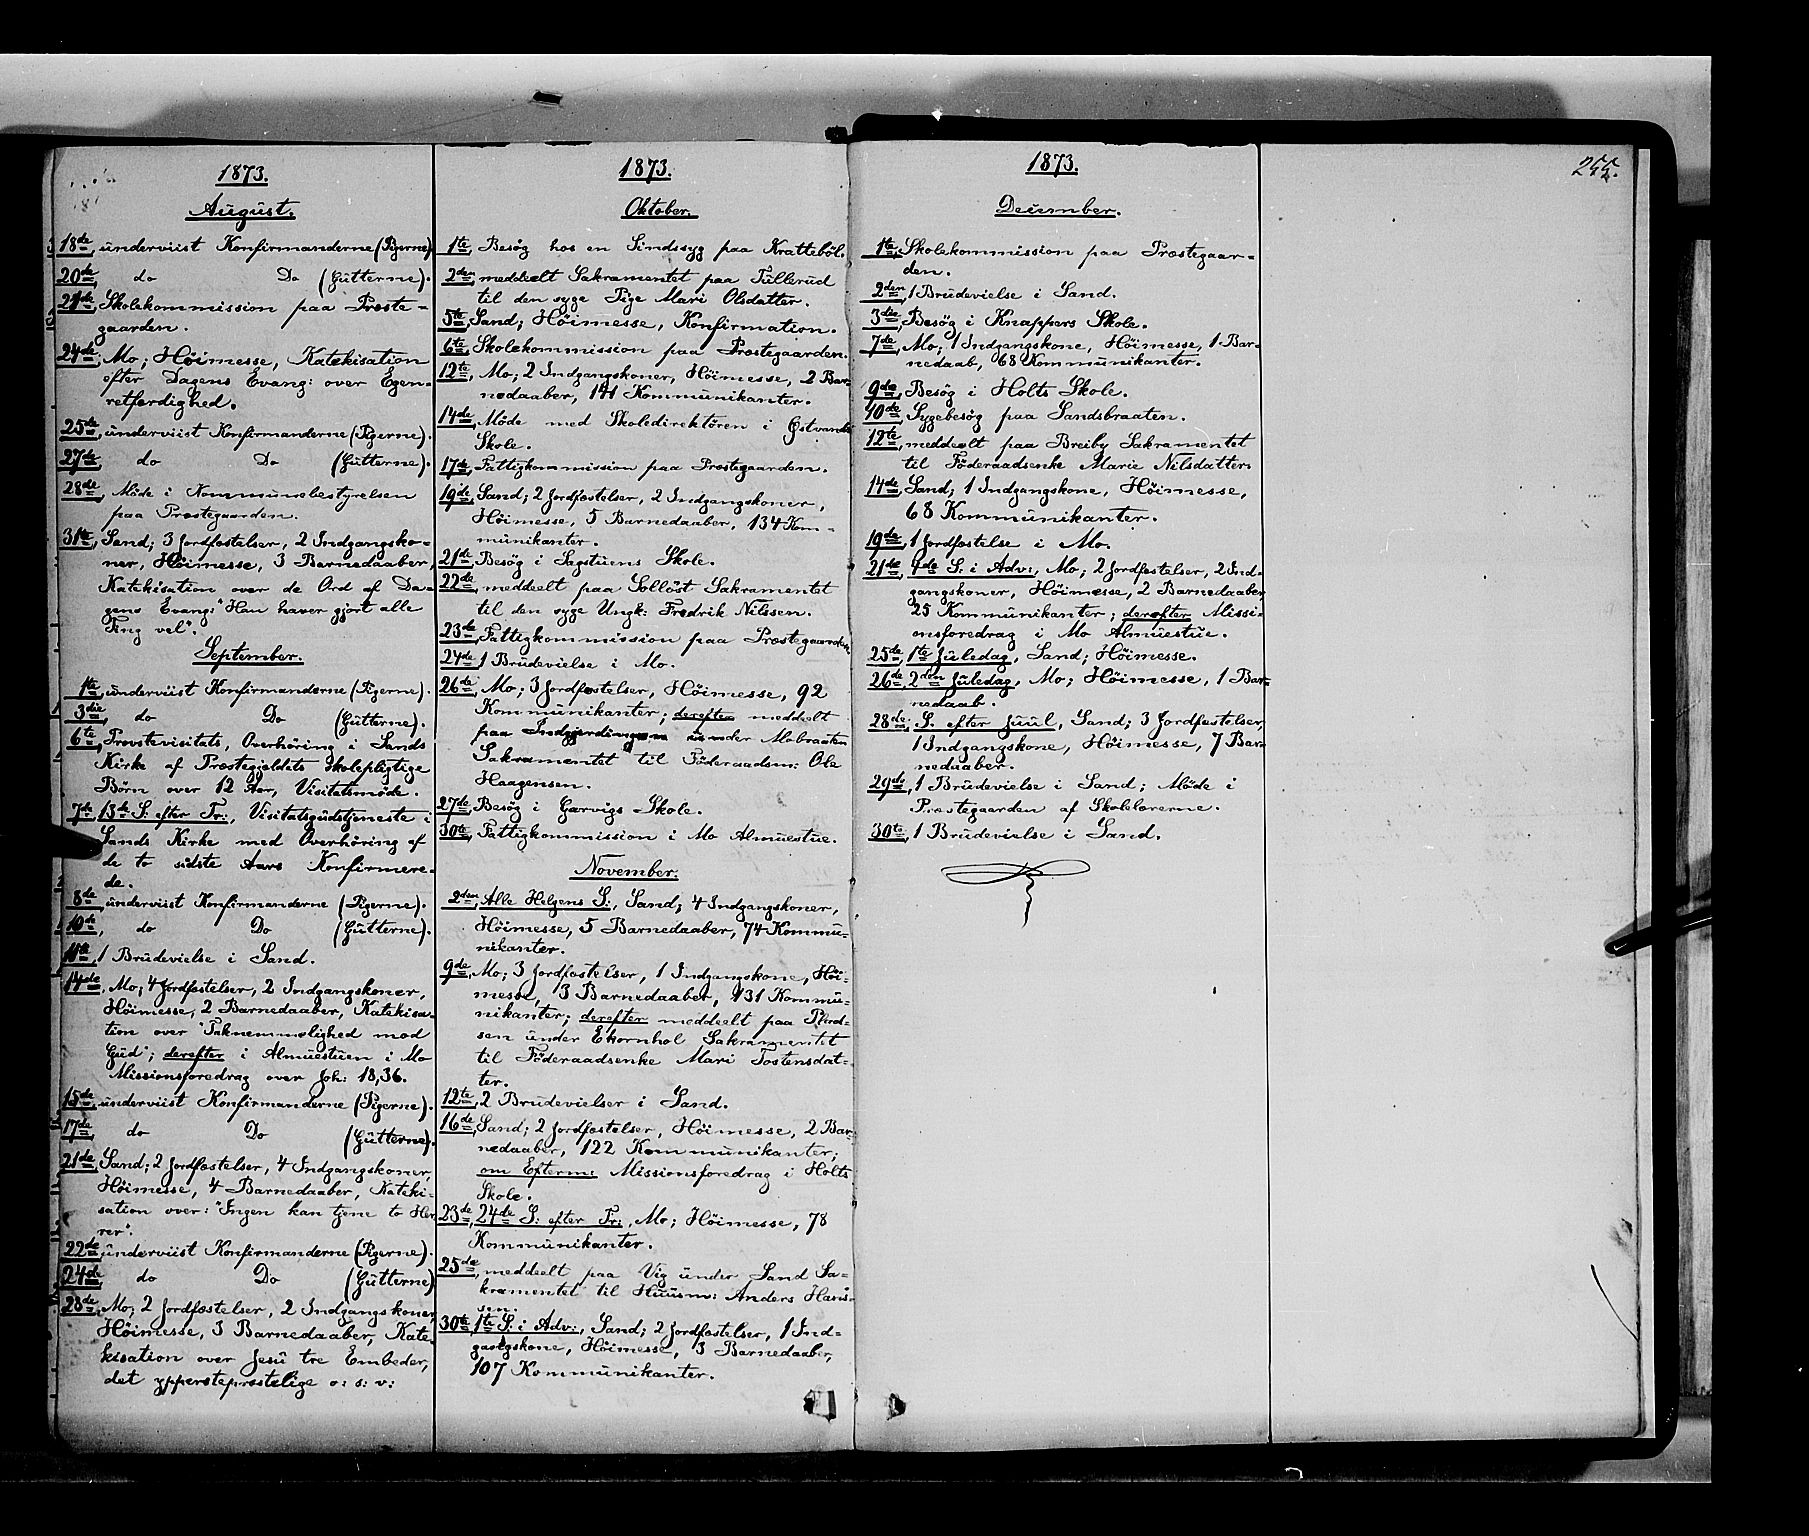 1873.
August.
18de, underviist Konfirmanderne (Pigerne)
20de do Do (Gutterne).
21de, Skolekommission paa Præste-
gaarden.
24de, Mo; Høimesse, Katekisation
efter Dagens Evang: over Egen-
retfærdighed.
25de, underviist Konfirmanderne (Pigerne).
27de, do Do (Gutterne).
28de, Møde i Kommunebestyrelsen
paa Præstegaarden.
31te, Sand; 3 Jordfæstelser, 2 Indgangsko-
ner, Høimesse, 3 Barnedaaber,
Katekisation over de Ord af Da-
gens Evang: "Han haver gjort alle
Ting vel".
September.
1te, underviist Konfirmanderne (Pigerne).
3die, do Do (Gutterne).
6te, Provstevisitats, Overhøring i Sands
Kirke af Præstegjeldets skolepligtige
Børn over 12 Aar, Visitatsmøde.
7de, 13de S: efter Tr:, Visitatsgudstjeneste i
Sands Kirke med Overhøring af
de to sidste Aars Konfirmere-
de.
8de, underviist Konfirmanderne (Pigerne).
10de, do Do (Gutterne).
11te, 1 Brudevielse i Sand.
14de, Mo; 4 Jordfæstelser, 2 Indgangskoner,
Høimesse, 2 Barnedaaber, Katekisa-
tion over "Taknemmelighed mod
Gud"; derefter i Almuestuen i Mo
Missionsforedrag over Joh: 18,36.
15de, underviist Konfirmanderne (Pigerne).
17de, do Do (Gutterne).
21de, Sand; 2 Jordfæstelser, 4 Indgangskoner,
Høimesse, 4 Barnedaaber, Kateki-
sation over: "Ingen kan tjene to Her-
rer".
22de, underviist Konfirmanderne (Pigerne).
24de, do Do (Gutterne)
28de, Mo; 2 Jordfæstelser, 2 Indgangskoner,
Høimesse, 3 Barnedaaber, Kate-
kisation over Jesu tre Embeder,
det ypperstepræstelige o: s: v:
1873.
Oktober.
1te, Besøg hos en Sindssyg paa Kratteböl.
2den, meddeelt Sakramentet paa Tullerud
til den syge Pige Mari Olsdatter.
5te, Sand; Høimesse, Konfirmation.
6te, Skolekommission paa Præstegaarden.
12te, Mo; 2 Indgangskoner, Høimesse, 2 Bar-
nedaaber, 141 Kommunikanter.
14de, Møde med Skoledirektören i Østvands
Skole.
17de, Fattigkommission paa Præstegaarden.
19de, Sand; 2 Jordfæstelser, 2 Indgangskoner,
Høimesse, 5 Barnedaaber, 134 Kom-
munikanter.
21de, Besøg i Sagstuens Skole.
22de, meddeelt paa Solløst Sakramentet
til den syge Ungk: Fredrik Nilssen.
23de, Fattigkommission paa Præstegaarden
24de, 1 Brudevielse i Mo.
26de, Mo; 3 Jordfæstelser, Høimesse, 92
Kommunikanter; derefter meddeelt
paa Indgjerdingen under Mobraaten
Sakramentet til Föderaadsm: Ole
Haagensen.
27de, Besøg i Garvigs Skole.
30te, Fattigkommission i Mo Almuestue.
November.
2den, Alle Helgens S:, Sand; 4 Indgangskoner,
Høimesse, 5 Barnedaaber, 74 Kommu-
nikanter.
9de, Mo; 3 Jordfæstelser, 1 Indgangskone, Høi-
messe, 3 Barnedaaber, 131 Kommu-
nikanter; derefter meddeelt paa
sen under Ekornhol Sakramentet
til Föderaadsenke Mari Tostensdat-
ter.
12te, 2 Brudevielser i Sand.
16de, Sand; 2 Jordfæstelser, Høimesse, 2 Bar-
nedaaber, 122 Kommunikanter;
om Efterm: Missionsforedrag i Holts
Skole.
23de, 24de S: efter Tr:, Mo; Høimesse, 78
Kommunikanter.
25de, meddeelt paa Vig under Sand Sa-
kramentet til Huusm: Anders Hans-
sen.
30te, 1te S: i Adv:, Sand; 2 Jordfæstelser, 1 Ind-
gangskone, Høimesse, 3 Barnedaaber,
107 Kommunikanter.
1873.
December.
1te, Skolekommission paa Præstegaar-
den.
2den, 1 Brudevielse i Sand.
3die, Besøg i Knappers Skole.
7de, Mo; 1 Indgangskone, Høimesse, 1 Bar-
nedaab, 68 Kommunikanter.
9de, Besøg i Holts Skole.
10de, Sygebesøg paa Sandsbraaten.
12te, meddeelt paa Breiby Sakramentet
til Föderaadsenke Marie Nilsdatter.
14de, Sand; 1 Indgangskone, Høimesse,
68 Kommunikanter.
19de, 1 Jordfæstelse i Mo.
21de, 4de S: i Adv:, Mo; 2 Jordfæstelser, 2 Ind-
gangskoner, Høimesse, 2 Barnedaaber
25 Kommunikanter; derefter Missi-
onsforedrag i Mo Almuestue.
25de, 1te Juledag, Sand; Høimesse.
26de, 2den Juledag, Mo; Høimesse, 1 Bar-
nedaab.
28de, S. efter Juul, Sand; 3 Jordfæstelser,
1 Indgangskone, Høimesse, 7 Bar-
nedaaber.
29de, 1 Brudevielse i Sand; Møde i
Præstegaarden af Skolelærerne.
30te, 1 Brudevielse i Sand.
255.